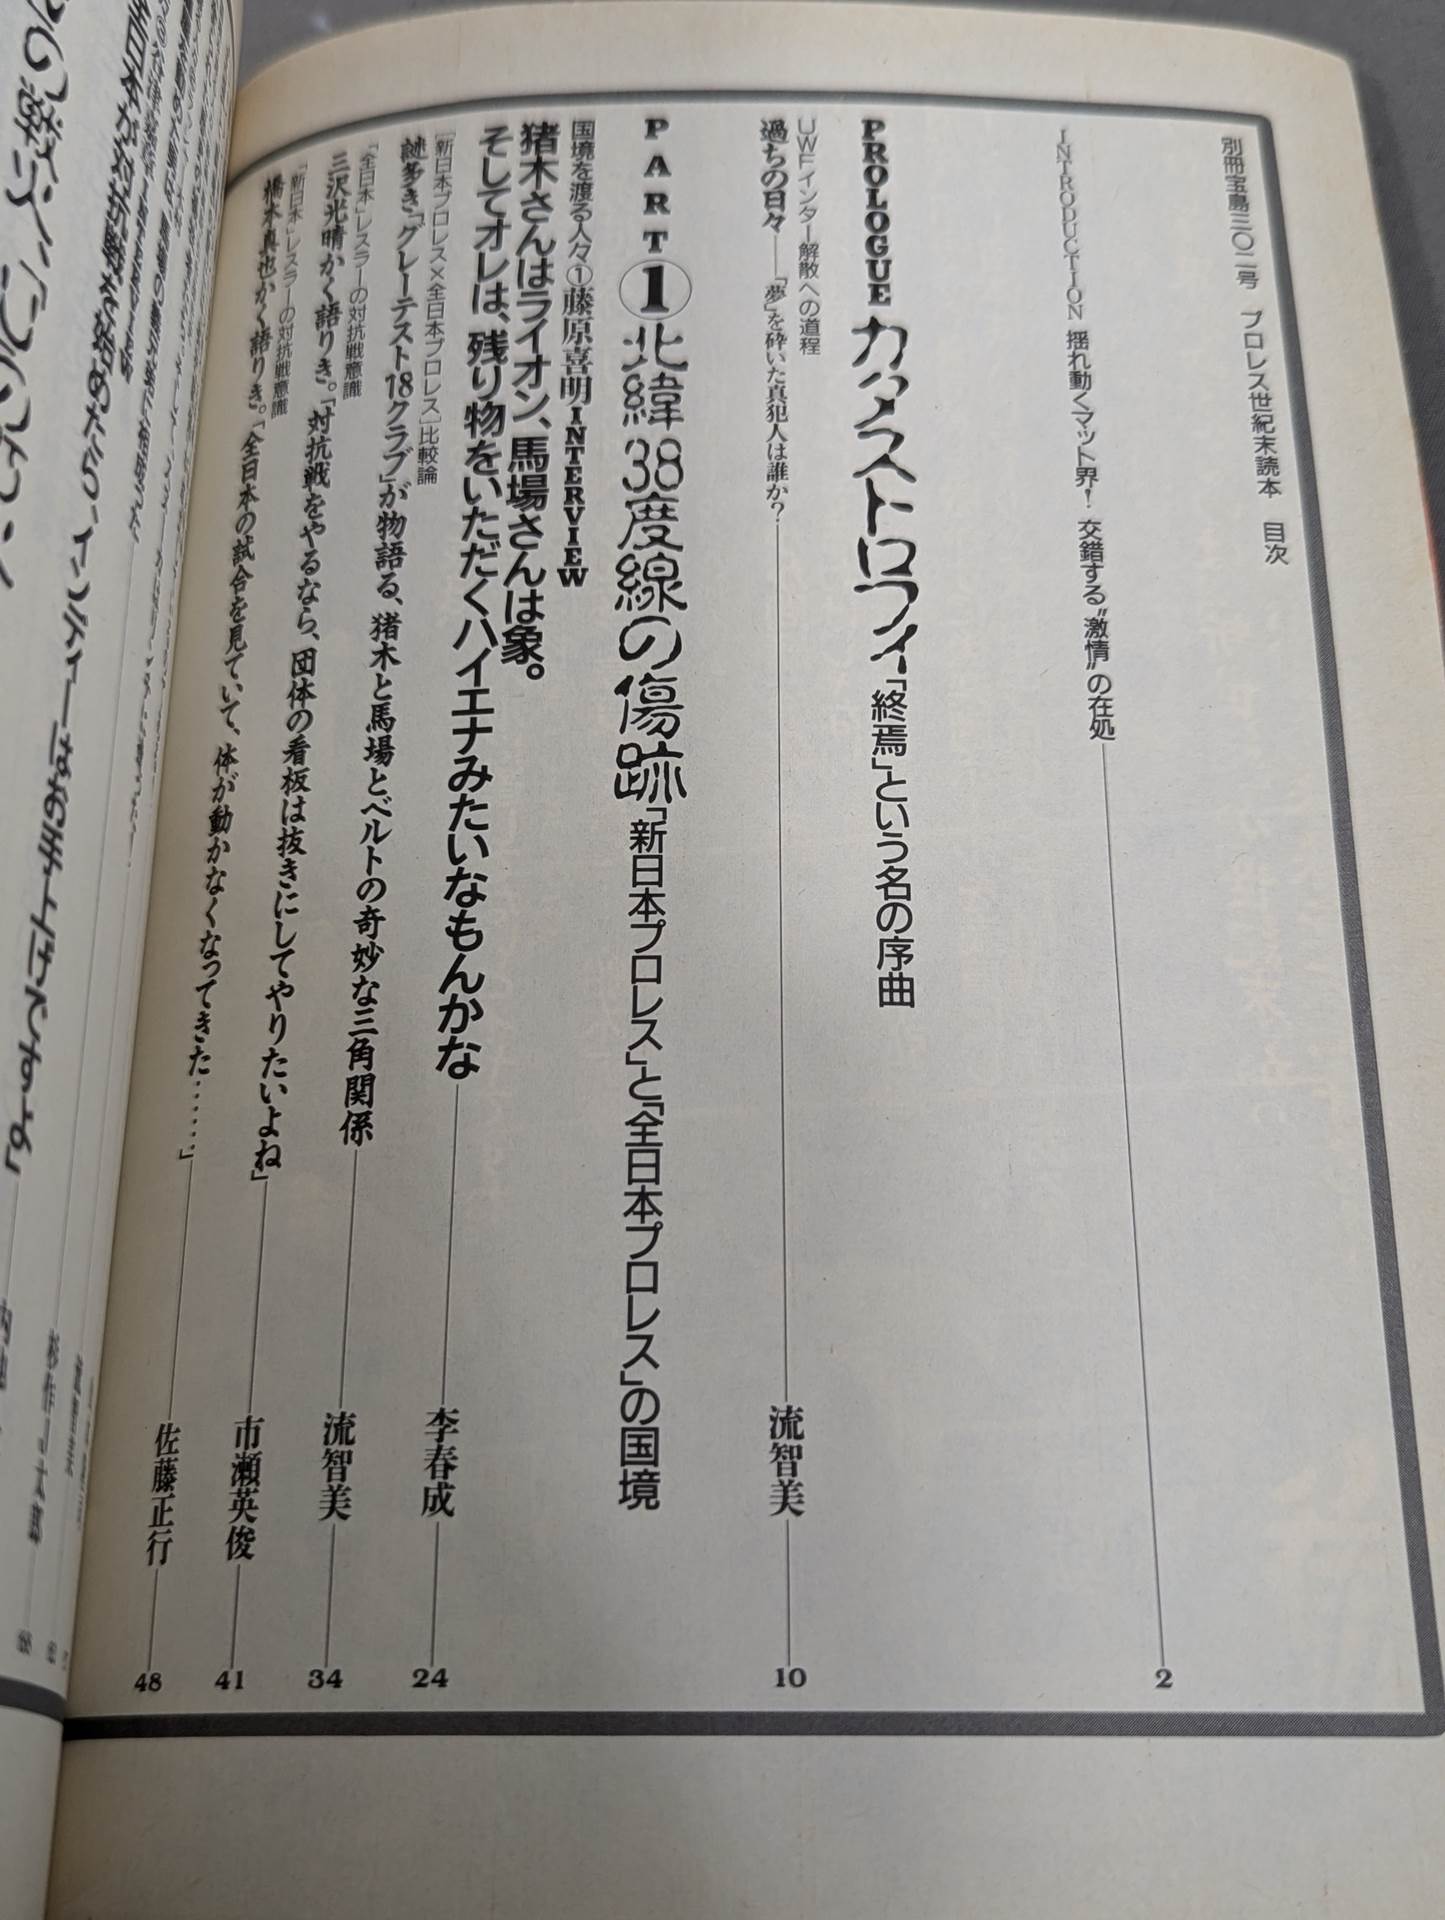 別冊宝島三〇二号　プロレス世紀末読本　目次
INTRODUCTION 揺れ動くマット界！ 交錯する"激情"の在処 2
PROLOGUE カタストロフィ「終焉」という名の序曲
UWFインター解散への道程
過ちの日々──「夢」を砕いた真犯人は誰か？ 流智美 10
PART① 北緯38度線の傷跡「新日本プロレス」と「全日本プロレス」の国境
国境を渡る人々①藤原喜明INTERVIEW
猪木さんはライオン、馬場さんは象。
そしてオレは、残り物をいただくハイエナみたいなもんかな 李春成 24
［新日本プロレス×全日本プロレス］比較論
謎多き「グレーテスト18クラブ」が物語る、猪木と馬場とベルトの奇妙な三角関係 流智美 34
「全日本」レスラーの対抗戦意識
三沢光晴かく語りき。「対抗戦をやるなら、団体の看板は抜きにしてやりたいよね」 市瀬英俊 41
「新日本」レスラーの対抗戦意識
橋本真也かく語りき。「全日本の試合を見ていて、体が動かなくなってきた……」 佐藤正行 48
全日本が対抗戦を始めたら、インディーはお手上げですよ」
杉作J太郎